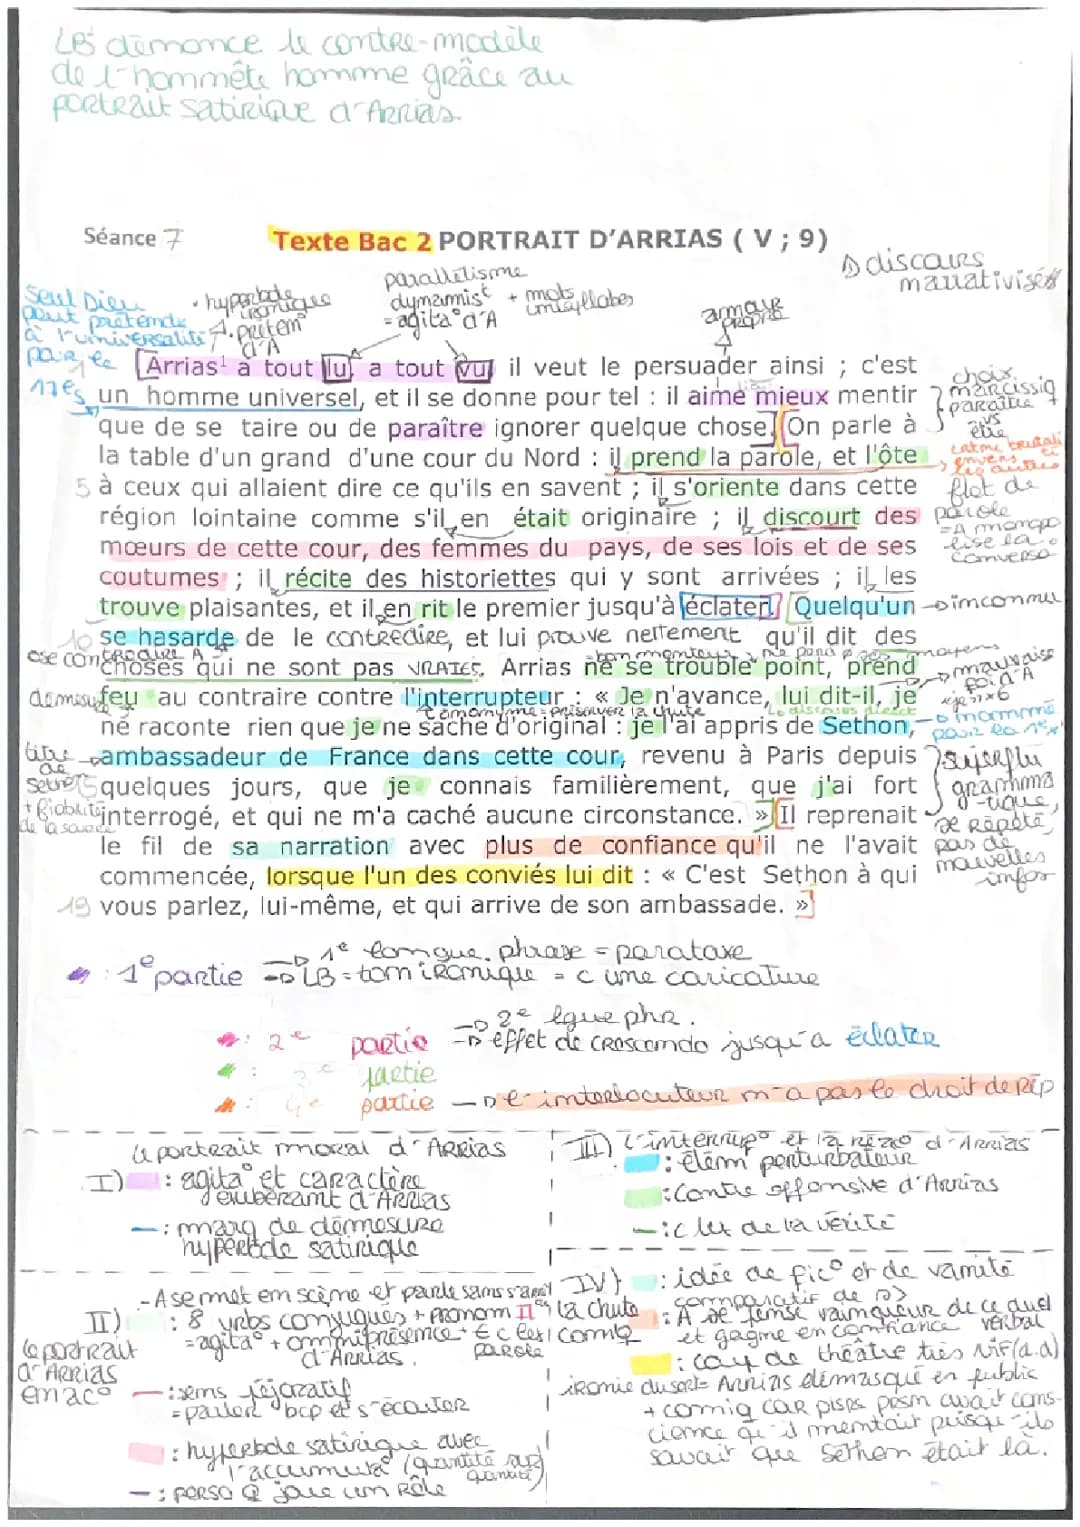 LB dénonce le contre-modèle
de l'honnête homme grâce au
portrait satirique d'Arrias.
Séance 7
Texte Bac 2 PORTRAIT D'ARRIAS ( V ; 9)
→ discours
narrativisé
Seul Dieu
peut prétendre
à l'universalité
pour le
17es
• hyperbole
ironique
• prétent°
d'A
parallélisme
dynamist + mots
unisyllabes
= agitat° d'A
Arrias¹ a tout lu, a tout vu, il veut le persuader ainsi ; c'est
un homme universel, et il se donne pour tel : il aime mieux mentir
que de se taire ou de paraître ignorer quelque chose. On parle à
la table d'un grand d'une cour du Nord : il prend la parole, et l'ôte
5 à ceux qui allaient dire ce qu'ils en savent ; il s'oriente dans cette
région lointaine comme s'il en était originaire ; il discourt des
mœurs de cette cour, des femmes du pays, de ses lois et de ses
coutumes ; il récite des historiettes qui y sont arrivées ; il les
trouve plaisantes, et il en rit le premier jusqu'à éclater. Quelqu'un
10 se hasarde de le contredire, et lui prouve nettement qu'il dit des
choses qui ne sont pas VRAIES. Arrias ne se trouble point, prend
feu au contraire contre l'interrupteur : « Je n'avance, lui dit-il, je
ne raconte rien que je ne sache d'original : je l'ai appris de Sethon,
ambassadeur de France dans cette cour, revenu à Paris depuis
15 quelques jours, que je connais familièrement, que j'ai fort
interrogé, et qui ne m'a caché aucune circonstance. » Il reprenait
le fil de sa narration avec plus de confiance qu'il ne l'avait
commencée, lorsque l'un des conviés lui dit : « C'est Sethon à qui
19 vous parlez, lui-même, et qui arrive de son ambassade. »
choix
narcissiq
paraître +
vs
être
flot de
parole
= A monopo
lise la
conversa°
→ inconnu
ose contredire A
→ mauvaise
foi d'A
"je" x6
démesure
→ discours direct
→ nommé
pour la 1e x
titre
de
+ fiabilité
de la source
superflu
gramma
-tique,
se répète,
pas de
nouvelles
infos
: 1e partie → 1e longue phrase = parataxe
→ LB = ton ironique = c une caricature
: 2e partie → 2e lgue phr.
→ effet de crescendo jusqu'à éclater
: 3e partie
: 4e partie → l'interlocuteur n'a pas le droit de rép
le portrait moral d'Arrias
I) : agitat° et caractère
exubérant d'Arrias
— : marq de démesure
hyperbole satirique
II)
le portrait
d'Arrias
en act°
- A se met en scène et parle sans arrêt
: 8 vrbs conjugués + pronom Il
= agitat° + omniprésence
d'Arrias.
— : sens péjoratif
= parler bcp et s'écouter
: hyperbole satirique avec
l'accumulat° (quantité sur
quantité)
— : perso q joue un rôle
III) l'interrupt° et la réact° d'Arrias
: élém perturbateur
: contre offensive d'Arrias
— : clut de la vérité
IV)
la chute
comiq
: idée de fict° et de vanité
comparatif de sup
: A se pense vainqueur de ce duel
verbal
et gagne en confiance
: coup de théâtre très vif (d.d)
ironie du sort = Arrias démasqué en public
+ comiq car plsrs pers avait cons-
cience qu'il mentait puisqu'ils
savait que Sethon était là.